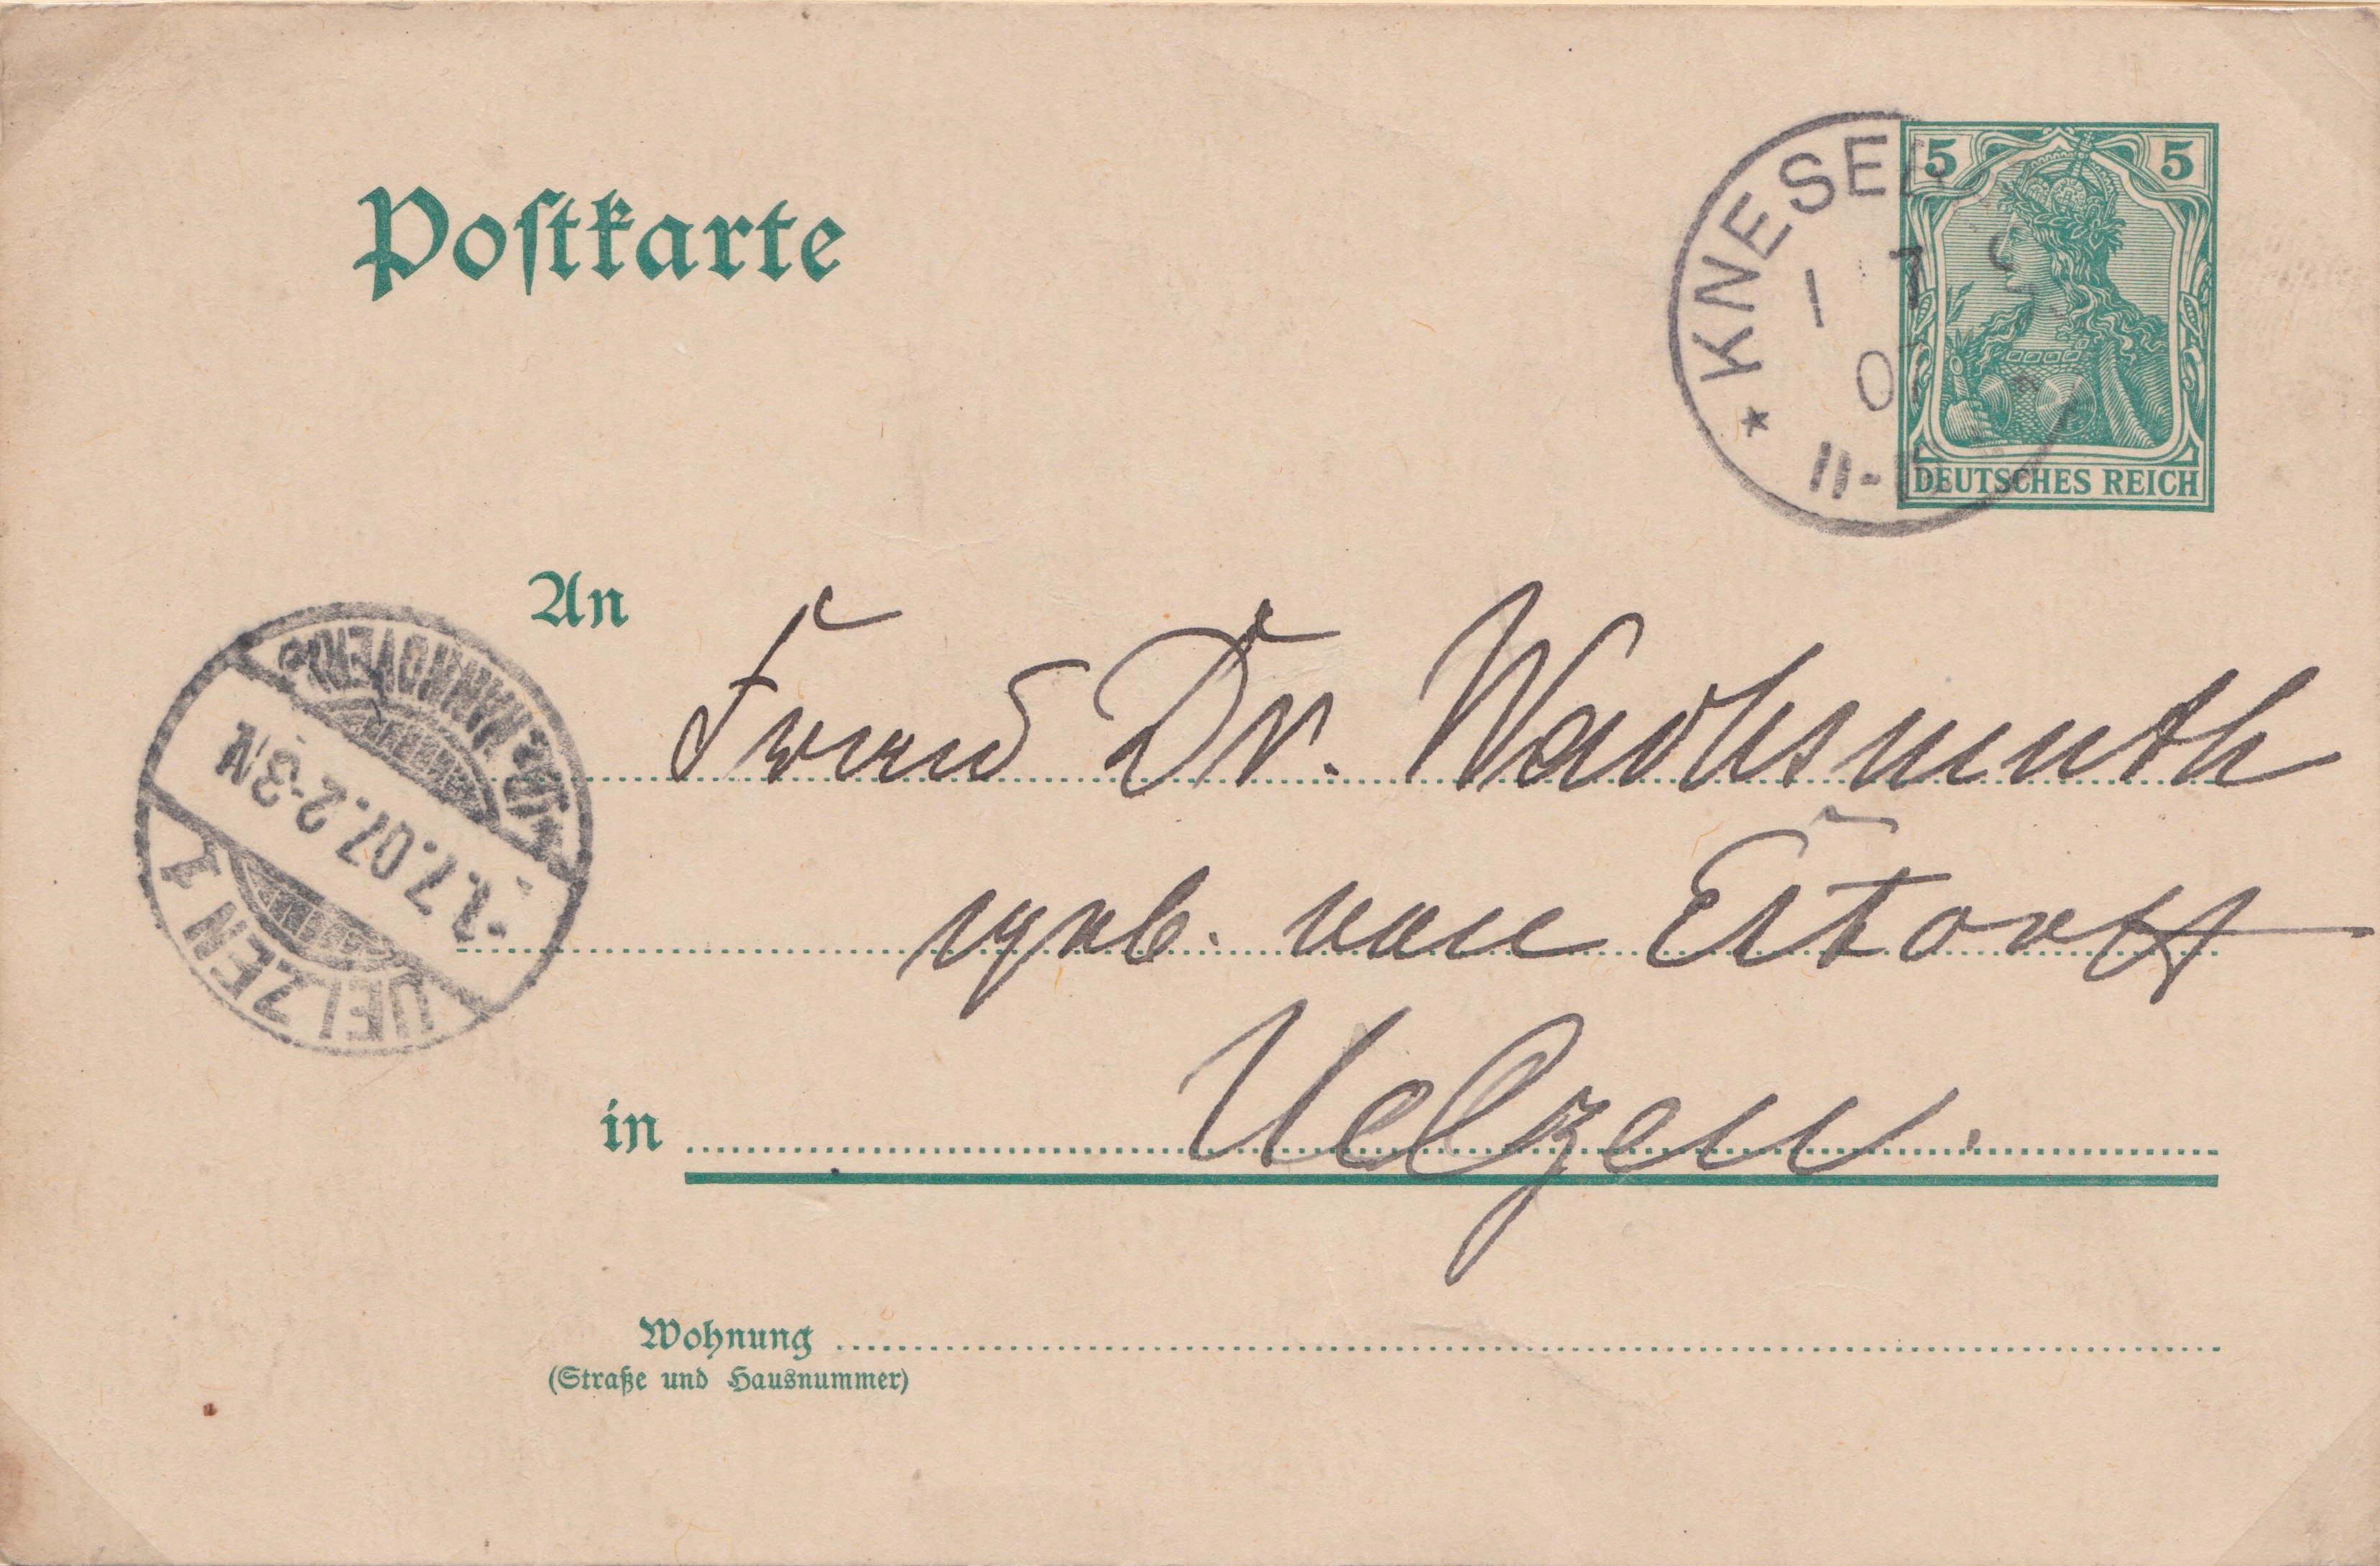 Postkarte
KNESEB
1 7
07
5 5
DEUTSCHES REICH
An
Frau Dr. Wachsmuth
geb. von Estorff
in Uelzen.
Wohnung
(Straße und Hausnummer)
UELZEN 1
1.7.07. 2-3N
HANNOVER